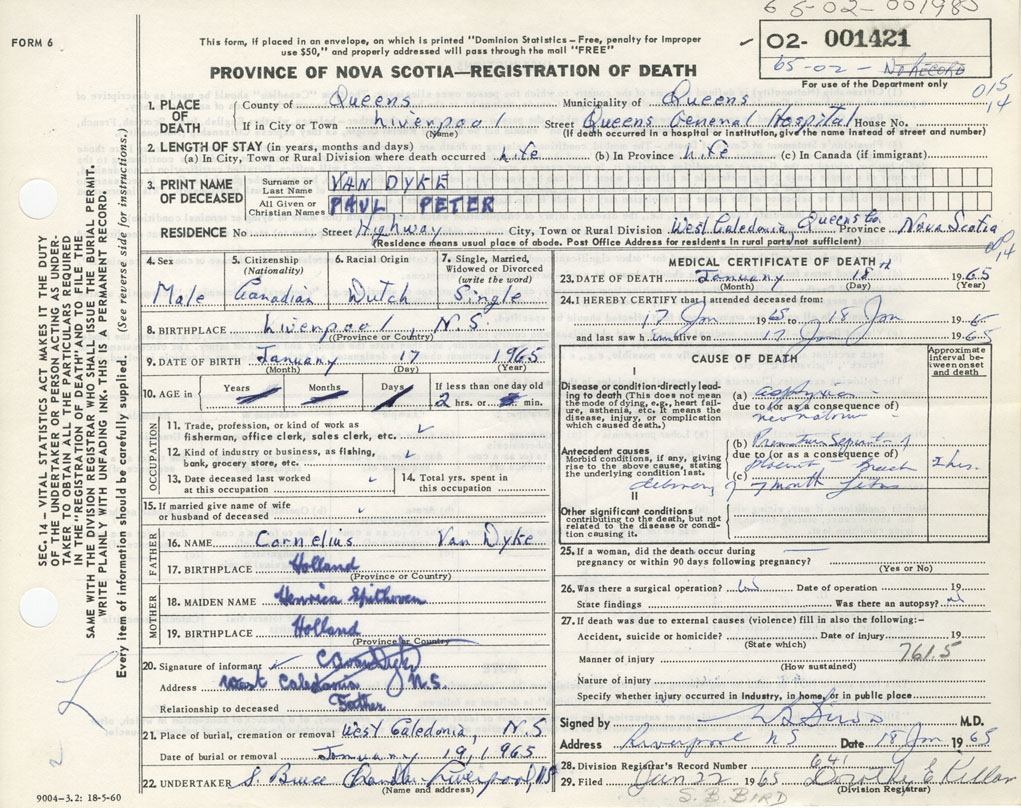 65-02-001985
FORM 6
This form, if placed in an envelope, on which is printed "Dominion Statistics – Free, penalty for improper
use $50," and properly addressed will pass through the mail "FREE"
02- 001421
65-02- No RECORD
For use of the Department only
015
14
PROVINCE OF NOVA SCOTIA—REGISTRATION OF DEATH
1. PLACE OF DEATH
County of Queens Municipality of Queens
If in City or Town Liverpool Street Queens General Hospital House No.
(Name) (If death occurred in a hospital or institution, give the name instead of street and number)
2. LENGTH OF STAY (in years, months and days)
(a) In City, Town or Rural Division where death occurred Life (b) In Province Life (c) In Canada (if immigrant)
3. PRINT NAME OF DECEASED
Surname or Last Name VAN DYKE
All Given or Christian Names PAUL PETER
RESIDENCE No Street Highway City, Town or Rural Division West Caledonia, Queens Co. Province Nova Scotia
(Residence means usual place of abode. Post Office Address for residents in rural parts not sufficient)
14
4. Sex Male
5. Citizenship (Nationality) Canadian
6. Racial Origin Dutch
7. Single, Married, Widowed or Divorced (write the word) Single
8. BIRTHPLACE Liverpool, N.S.
(Province or Country)
9. DATE OF BIRTH January 17 1965
(Month) (Day) (Year)
10. AGE in Years Months Days If less than one day old
2 hrs. or min.
OCCUPATION
11. Trade, profession, or kind of work as
fisherman, office clerk, sales clerk, etc.
12. Kind of industry or business, as fishing,
bank, grocery store, etc.
13. Date deceased last worked
at this occupation
14. Total yrs. spent in
this occupation
15. If married give name of wife
or husband of deceased
FATHER
16. NAME Cornelius Van Dyke
17. BIRTHPLACE Holland
(Province or Country)
MOTHER
18. MAIDEN NAME Henrica Spithoven
19. BIRTHPLACE Holland
(Province or Country)
20. Signature of informant C Van Dyk
Address West Caledonia N.S.
Relationship to deceased Father
21. Place of burial, cremation or removal West Caledonia, N.S.
Date of burial or removal January 19, 1965
22. UNDERTAKER S. Bruce Chandler Liverpool, NS
(Name and address)
9004—3.2: 18-5-60
MEDICAL CERTIFICATE OF DEATH
23. DATE OF DEATH January 18th 1965
(Month) (Day) (Year)
24. I HEREBY CERTIFY that I attended deceased from:
17 Jan 1965 to 18 Jan 1965
and last saw him alive on 17 Jan 1965
CAUSE OF DEATH
Approximate interval between onset and death
I
Disease or condition directly leading
to death (This does not mean
the mode of dying, e.g., heart failure,
asthenia, etc. It means the
disease, injury, or complication
which caused death.)
(a) asphyxia
due to (or as a consequence of)
neonatorum
Antecedent causes
Morbid conditions, if any, giving
rise to the above cause, stating
the underlying condition last.
(b) Premature Separat- of
due to (or as a consequence of)
placenta - breech 2 hrs.
(c)
delivery of 7 month fetus
II
Other significant conditions
contributing to the death, but not
related to the disease or condition
causing it.
25. If a woman, did the death occur during
pregnancy or within 90 days following pregnancy?
(Yes or No)
26. Was there a surgical operation? Date of operation 19
State findings Was there an autopsy?
27. If death was due to external causes (violence) fill in also the following:-
Accident, suicide or homicide? Date of injury 19
(State which)
Manner of injury 761.5
(How sustained)
Nature of injury
Specify whether injury occurred in industry, in home, or in public place
Signed by M.D.
Address Liverpool NS Date 18 Jan 1965
28. Division Registrar's Record Number 641
29. Filed Jan 22 1965 Dorothy E
(Division Registrar)
S.B. BIRD
SEC. 14 – VITAL STATISTICS ACT MAKES IT THE DUTY
OF THE UNDERTAKER OR PERSON ACTING AS UNDERTAKER
TO OBTAIN ALL THE PARTICULARS REQUIRED
IN THE "REGISTRATION OF DEATH" AND TO FILE THE
SAME WITH THE DIVISION REGISTRAR WHO SHALL ISSUE THE BURIAL PERMIT.
WRITE PLAINLY WITH UNFADING INK. THIS IS A PERMANENT RECORD.
Every item of information should be carefully supplied. (See reverse side for instructions.)